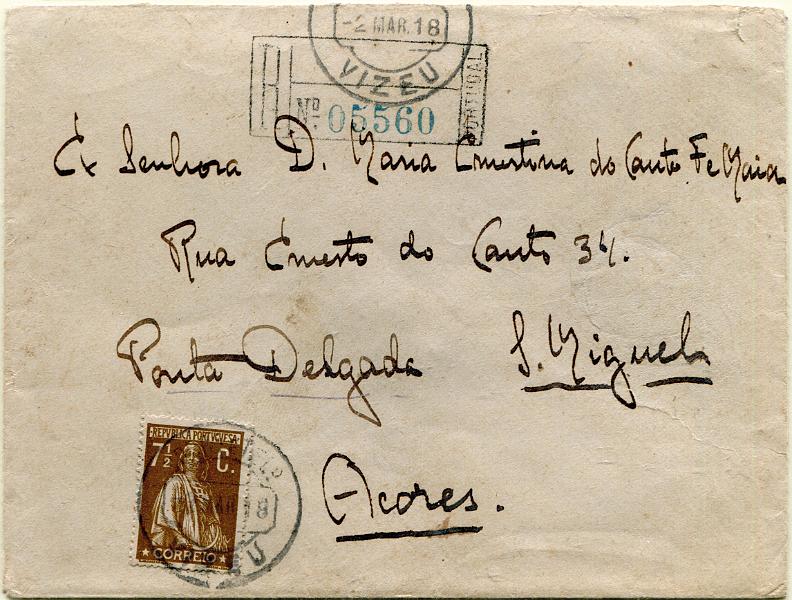 -2 MAR.18
VIZEU
R
PORTUGAL
Nº 05560
Ex Senhora D. Maria Ernestina do Canto Fe Maia
Rua Ernesto do Canto 34.
Ponta Delgada S. Miguel
Açores.
REPUBLICA PORTUGUESA
7½ C.
CORREIO